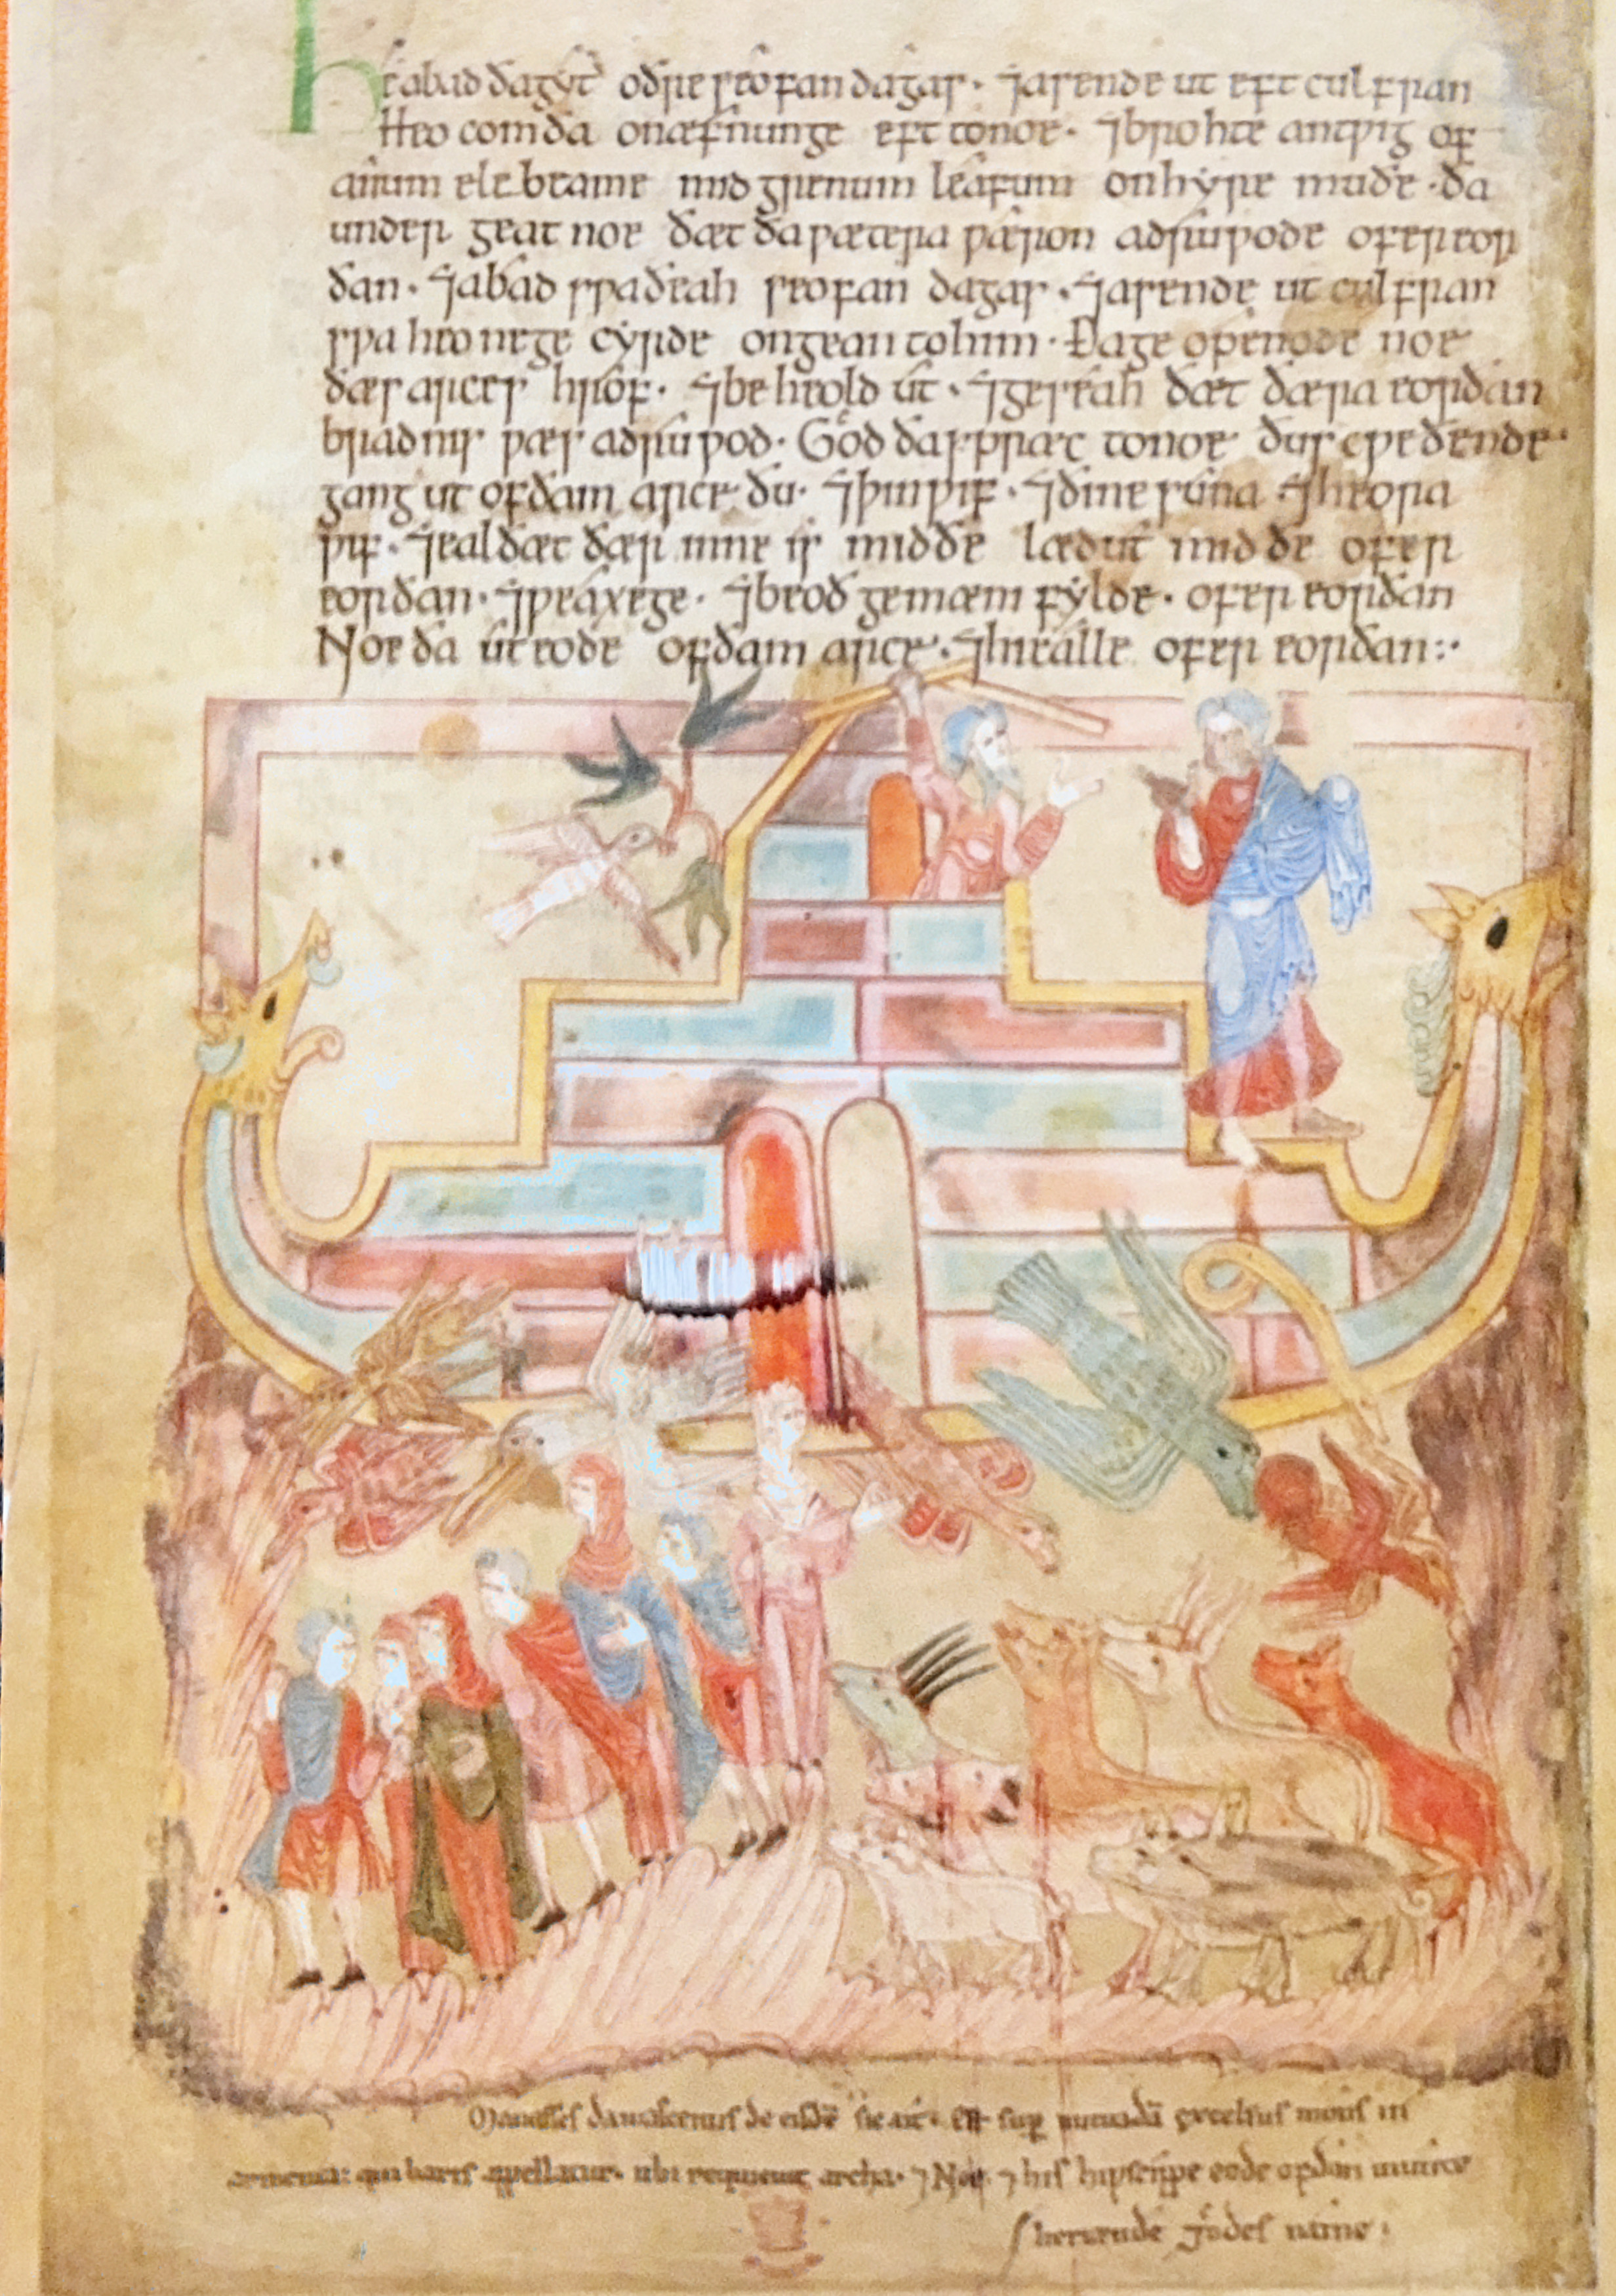 he abad ða gyt oðre seofan dagas · ⁊ asende ut eft culfran
Heo com ða on æfnunge eft to noe · ⁊ brohte an twig of
anum elebeame mid grenum leafum on hyre muðe · ða
under geat noe ðæt ða wætera wæron adruwode ofer eor
ðan · ⁊ abad swa ðeah seofan dagas · ⁊ asende ut culfran
swa heo ne ge cyrde ongean to him · Ða ge openode noe
ðæs arces hrof · ⁊ beheold ut · ⁊ geseah ðæt ðæra eorðan
bradnis wæs adruwod · God ða spræc to noe ðus cweðende ·
gang ut of ðam arce ðu · ⁊ þin wif · ⁊ ðine suna ⁊ heora
wif · ⁊ eal ðæt ðær inne is mid ðe læd ut mid ðe ofer
eorðan · ⁊ weaxege · ⁊ beoð gemænifylde · ofer eorðan
Noe ða ut eode of ðam arce · ⁊ hi ealle ofer eorðan :·
damascenus de eisdē sic ait · est sup̱ excelsus mons in
armenia : qui baris appellatur · ubi requieuit archa · ⁊ Noe ⁊ his eode ofðan
godes